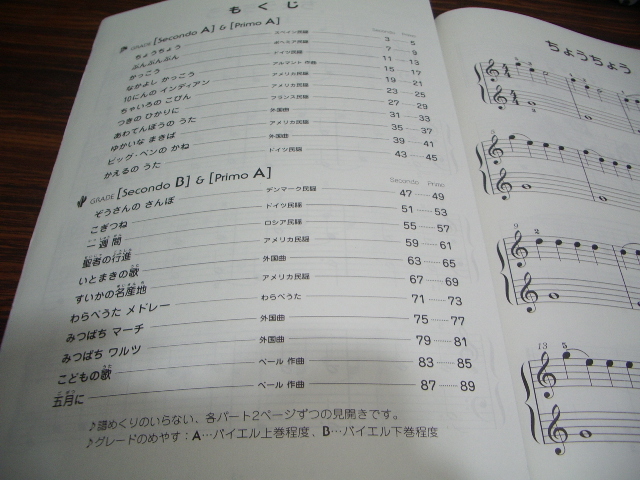 もくじ
GRADE [Secondo A] & [Primo A]
Secondo Primo
ちょうちょう スペイン民謡 3 5
ぶんぶんぶん ボヘミア民謡 7 9
かっこう ドイツ民謡 11 13
なかよし かっこう アルマント 作曲 15 17
10にんの インディアン アメリカ民謡 19 21
ちゃいろの こびん アメリカ民謡 23 25
つきの ひかりに フランス民謡 27 29
あわてんぼうの うた 外国曲 31 33
ゆかいな まきば アメリカ民謡 35 37
ビッグ・ベンの かね 外国曲 39 41
かえるの うた ドイツ民謡 43 45
GRADE [Secondo B] & [Primo A]
Secondo Primo
ぞうさんの さんぽ デンマーク民謡 47 49
こぎつね ドイツ民謡 51 53
一週間 ロシア民謡 55 57
聖者の行進 アメリカ民謡 59 61
いとまきの歌 外国曲 63 65
すいかの名産地 アメリカ民謡 67 69
わらべうた メドレー わらべうた 71 73
みつばち マーチ 外国曲 75 77
みつばち ワルツ 外国曲 79 81
こどもの歌 ベール 作曲 83 85
五月に ベール 作曲 87 89
♪譜めくりのいらない、各パート2ページずつの見開きです。
♪グレードのめやす：A…バイエル上巻程度、B…バイエル下巻程度
ちょうちょう
5
9
13